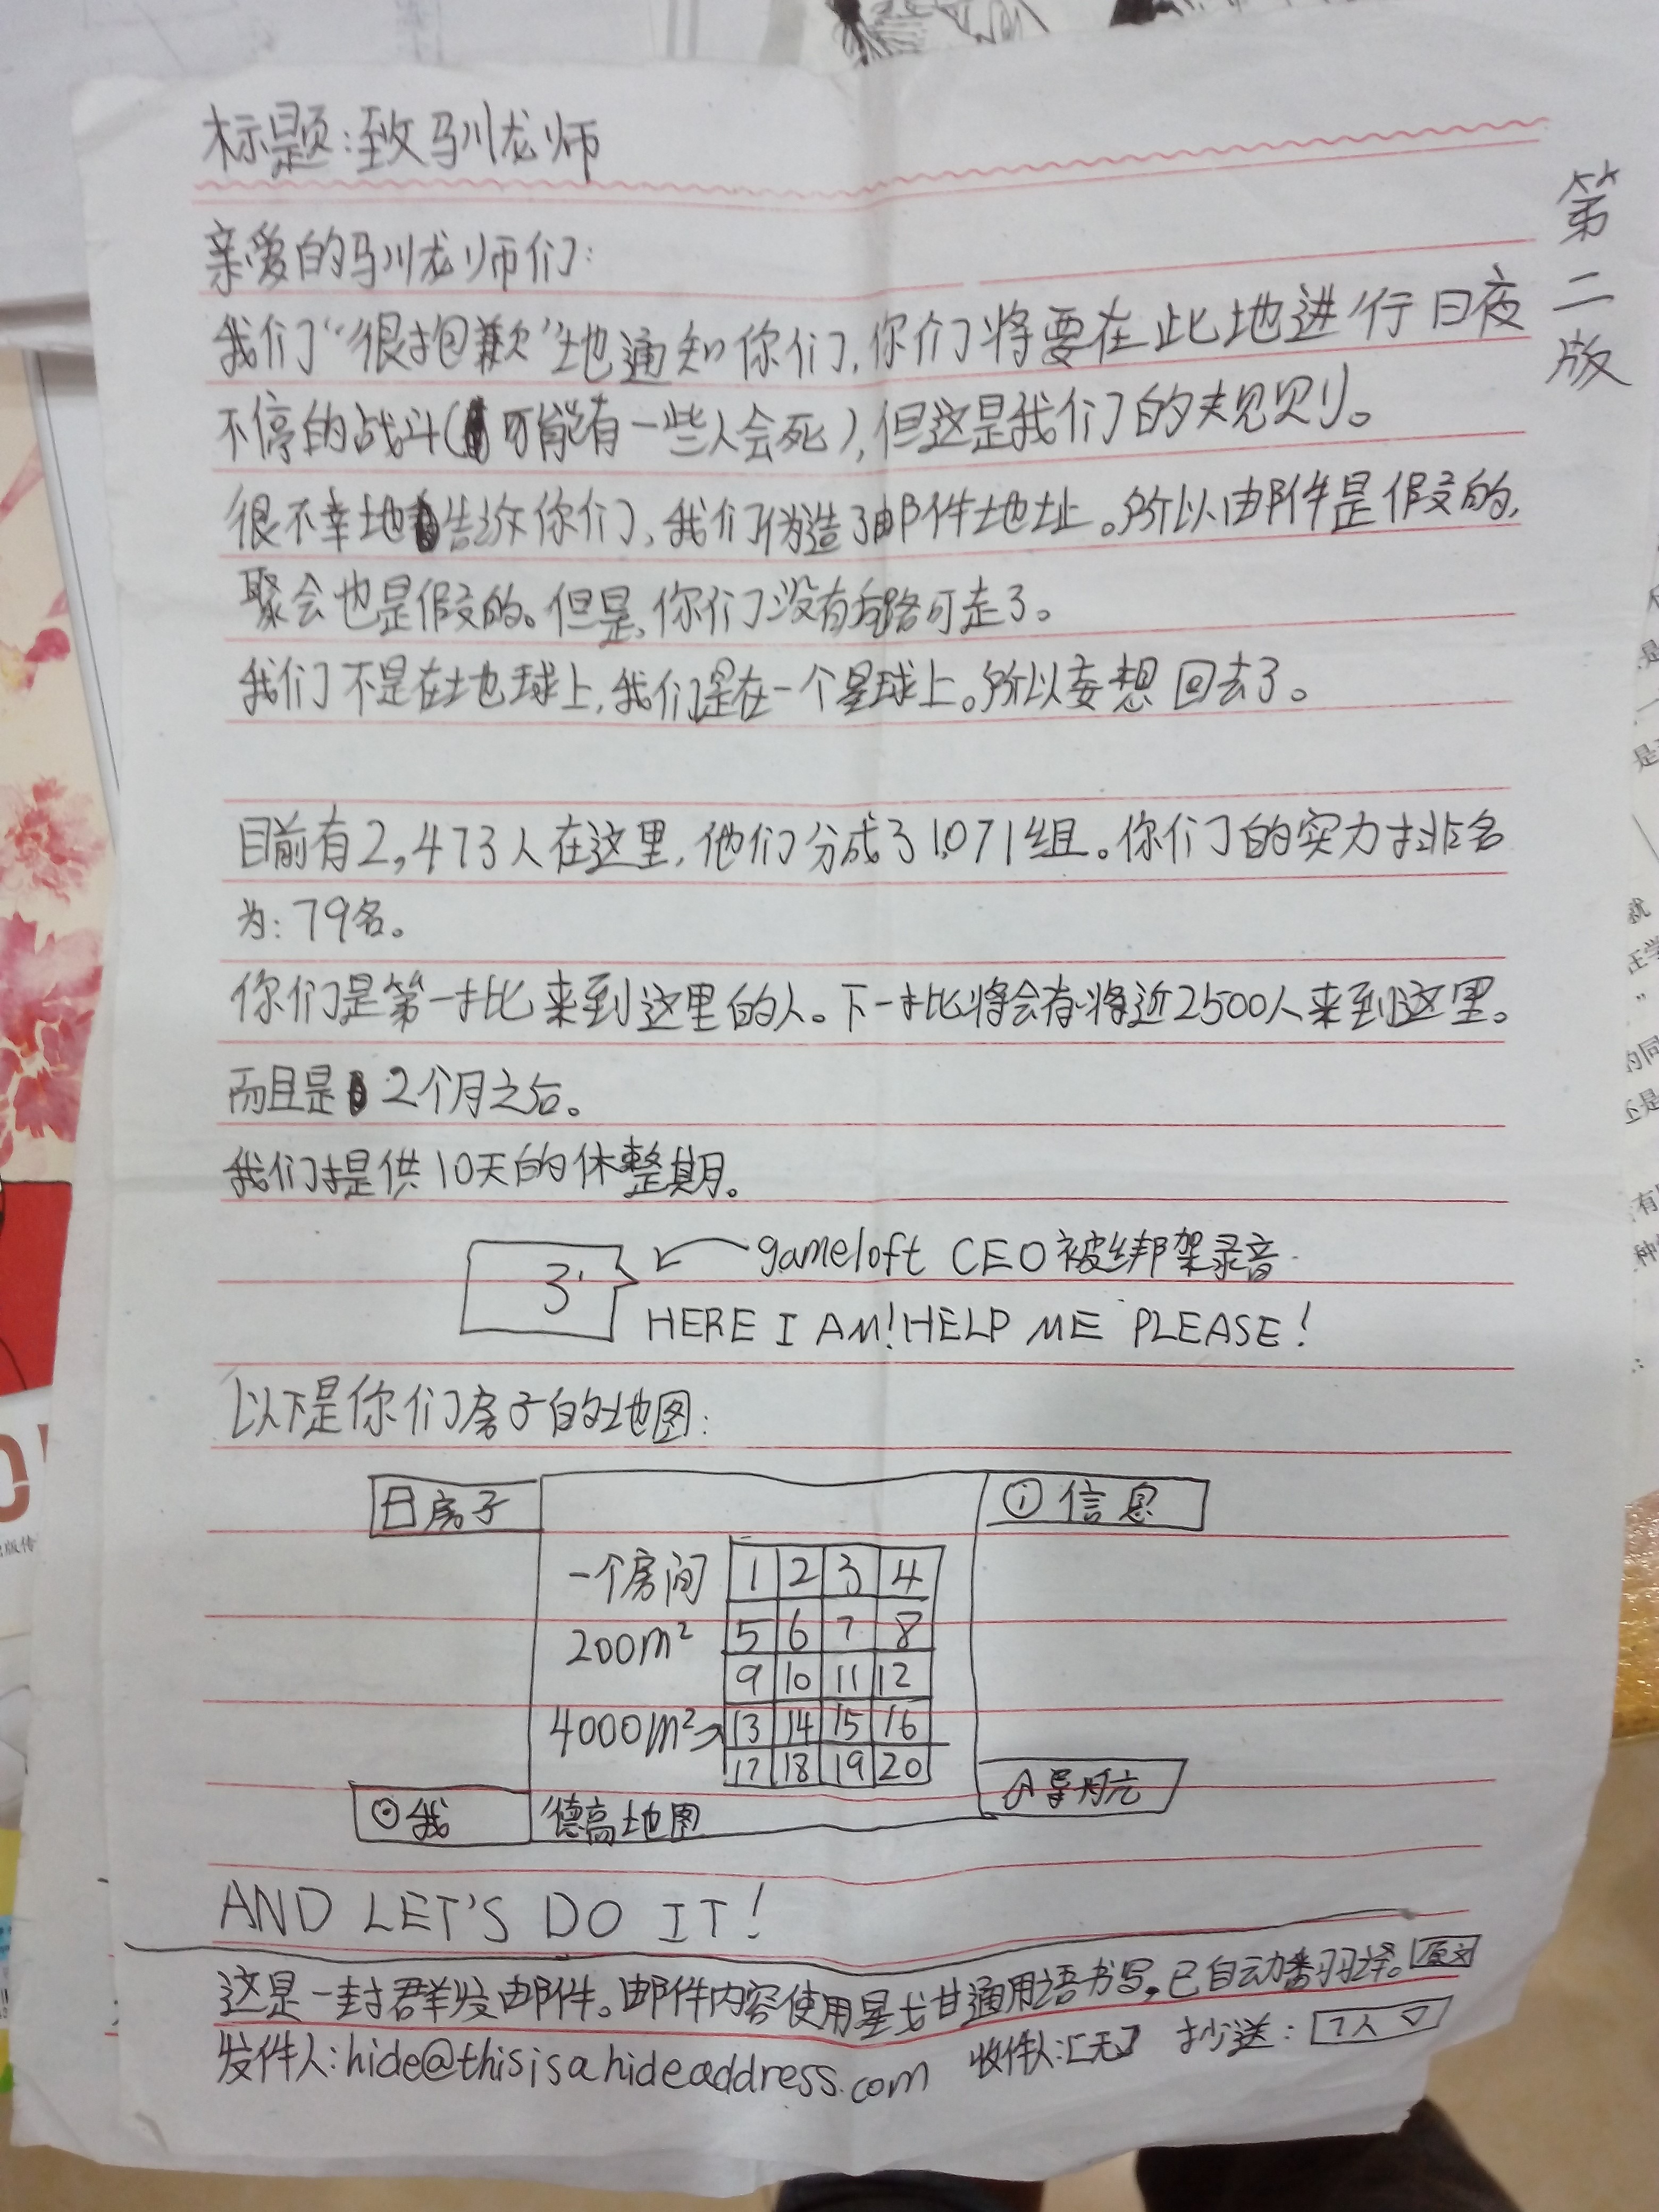 标题：致驯龙师
第二版
亲爱的驯龙师们：
我们“很抱歉”地通知你们，你们将要在此地进行日夜
不停的战斗（可能有一些人会死），但这是我们的规则。
很不幸地告诉你们，我们伪造了邮件地址。所以邮件是假的，
聚会也是假的。但是，你们没有后路可走了。
我们不是在地球上，我们是在一个星球上。所以妄想回去了。
目前有2,473人在这里，他们分成了1,071组。你们的实力排名
为：79名。
你们是第一批来到这里的人。下一批将会有将近2500人来到这里。
而且是2个月之后。
我们提供10天的休整期。
3' gameloft CEO被绑架录音
HERE I AM! HELP ME PLEASE!
以下是你们房子的地图：
房子
信息
一个房间
200m²
4000m²
1 2 3 4
5 6 7 8
9 10 11 12
13 14 15 16
17 18 19 20
我
德高地图
导航
AND LET'S DO IT!
这是一封群发邮件。邮件内容使用星戈甘通用语书写，已自动翻译。原文
发件人：hide@thisisahideaddress.com 收件人：[无] 抄送：7人